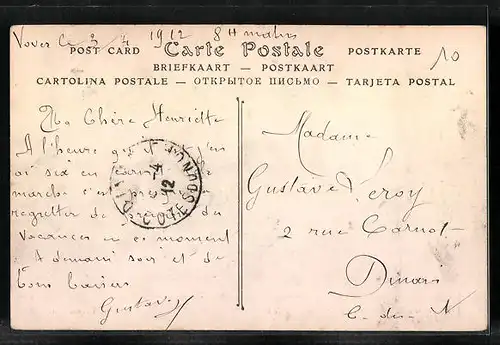 Voves le 3/4 1912 8 H matin
POST CARD Carte Postale POSTKARTE
BRIEFKAART — POSTKAART
CARTOLINA POSTALE — ОТКРЫТОЕ ПИСЬМО — TARJETA POSTAL
10
Ma Chère Henriette
A l'heure qu'il est j'en
ai six en
marche c'est
regretter de
vacances en ce moment
A demain soir et de
bons baisers
Gustave
Madame
Gustave Leroy
2 rue Carnot
Dinan
C. du. N
COTES DU NORD
4
12